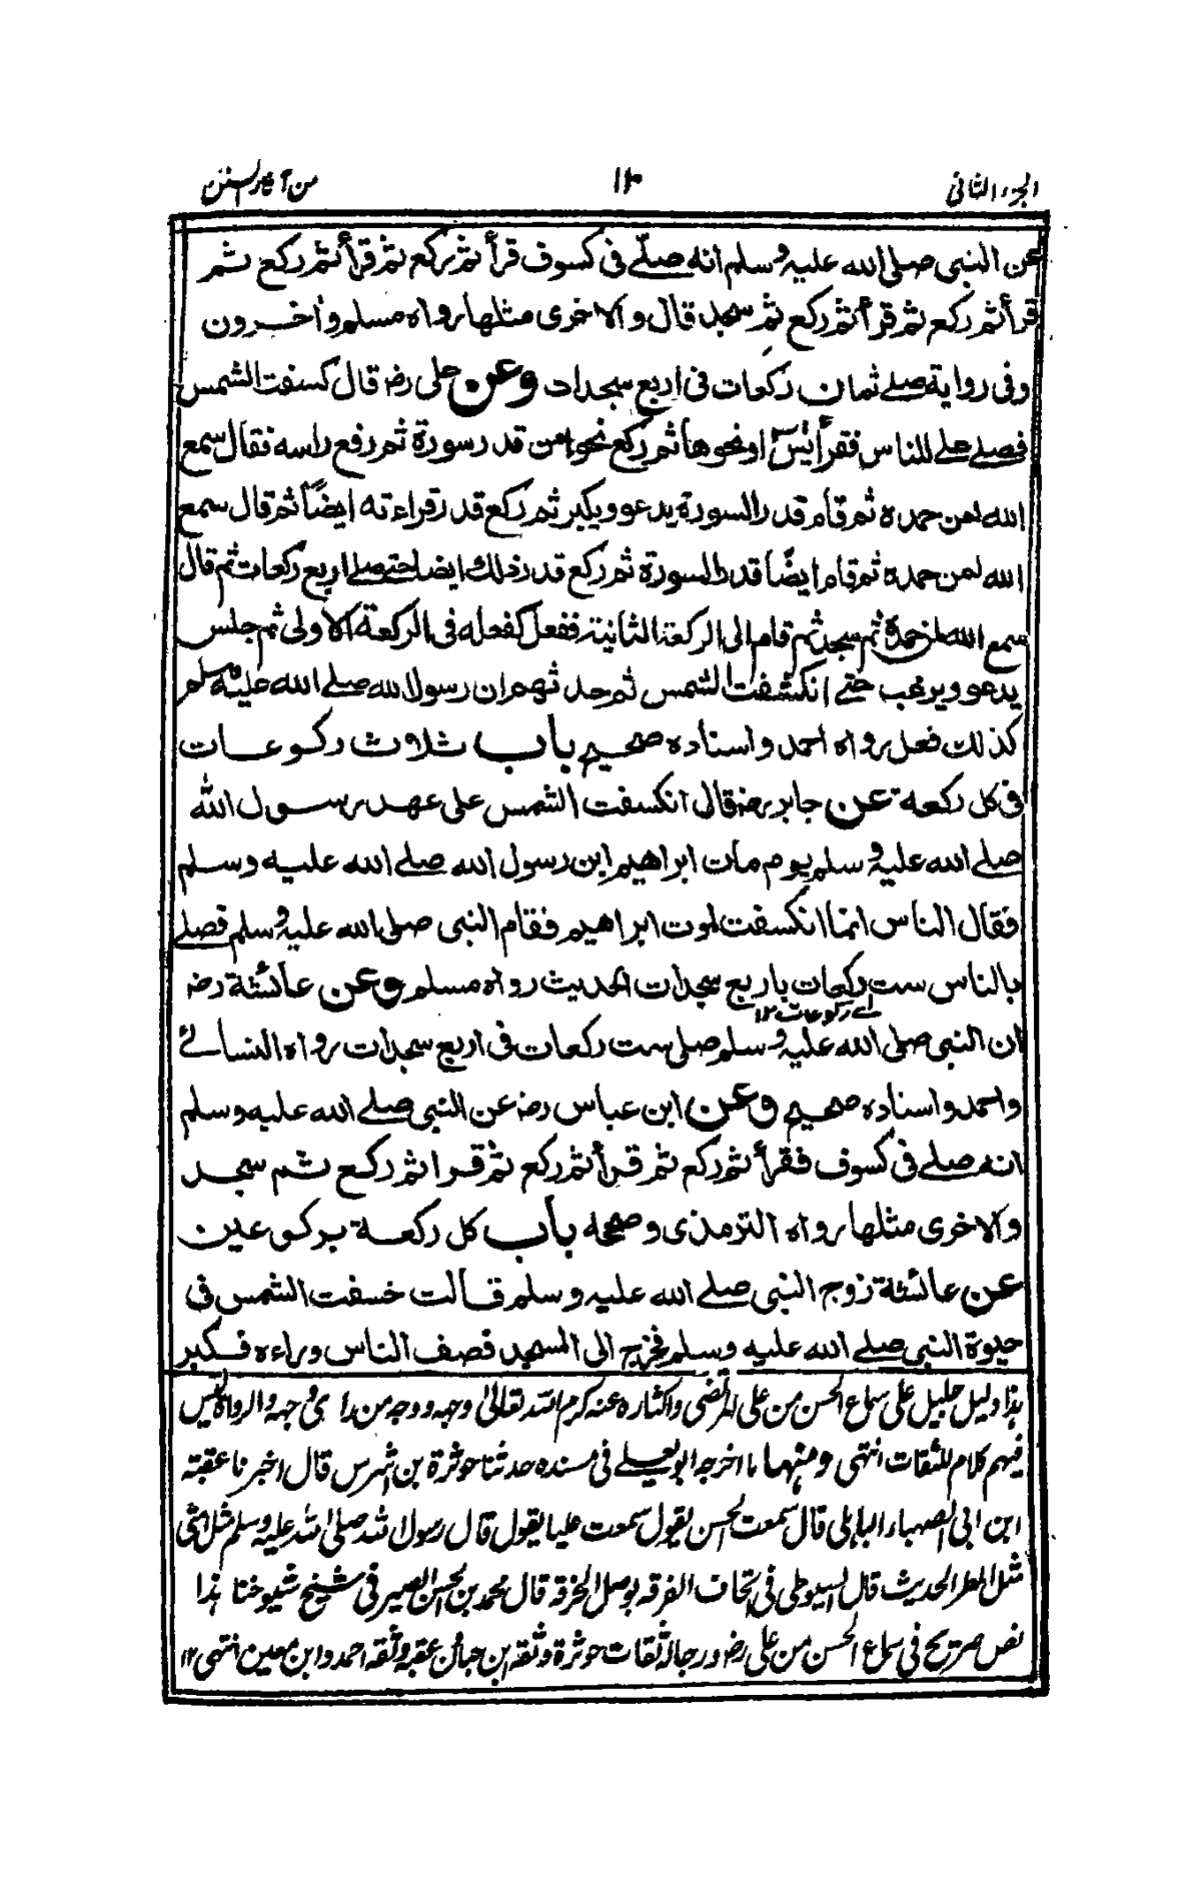 الجزء الثانی ١٢٠ من آثار السنن
عن النبی صلی الله علیه وسلم انه صلّے فی کسوف قرأ ثم رکع ثم قرأ ثم رکع ثم
قرأ ثم رکع ثم قرأ ثم رکع ثم سجد قال والاخری مثلها رواه مسلم واٰخرون
وفی روایة صلے ثمان رکعات فی اربع سجدات وعن علی رضـ قال کسفت الشمس
فصلے علے للناس فقرأ یٰسٓ او نحوها ثم رکع نحوا من قدر سورة ثم رفع راسه فقال سمع
الله لمن حمده ثم قام قدر السورة یدعو ویکبر ثم رکع قدر قراءته ایضاً ثم قال سمع
الله لمن حمده ثم قام ایضاً قدر السورة ثم رکع قدر ذلك ایضا حتے صلے اربع رکعات ثم قال
سمع الله لمن حمدہ ثم سجد ثم قام الی الرکعة الثانیة ففعل کفعله فی الرکعة الاولی ثم جلس
یدعو ویرغب حتے انکشفت الشمس ثم حدثهم ان رسول الله صلے الله علیه وسلم
کذلك فعل رواه احمد واسناده صحیح باب ثلاث رکوعات
فی کل رکعة عن جابر رضـ قال انکسفت الشمس علی عهد رسول الله
صلے الله علیه وسلم یوم مات ابراهیم ابن رسول الله صلے الله علیه وسلم
فقال الناس انما انکسفت لموت ابراهیم فقام النبی صلی الله علیه وسلم فصلے
بالناس ست رکعات باربع سجدات الحدیث رواه مسلم وعن عائشة رضـ
اے رکوعات ١٢
ان النبی صلی الله علیه وسلم صلی ست رکعات فی اربع سجدات رواه النسائے
واحمد واسناده صحیح وعن ابن عباس رضـ عن النبی صلے الله علیه وسلم
انه صلے فی کسوف فقرأ ثم رکع ثم قرأ ثم رکع ثم قرا ثم رکع ثم سجد
والاخری مثلها رواه الترمذی وصححه باب کل رکعة برکوعین
عن عائشة زوج النبی صلے الله علیه وسلم قالت خسفت الشمس فی
حیوة النبی صلے الله علیه وسلم فخرج الی المسجد فصف الناس وراءه فکبر
ہذا دلیل جلیل علی سماع الحسن من علی المرتضی واکثاره عنہ کرم اللہ تعالیٰ وجہہ ووجہ من رای وجہہ والرواة لیس
فیہم کلام للثقات انتہی ومنہا ما اخرجہ ابو یعلے فی مسندہ حدثنا حوثرة بن اشرس قال اخبرنا عقبة
ابن ابی الصہباء الباہلی قال سمعت الحسن یقول سمعت علیا یقول قال رسول اللہ صلی اللہ علیہ وسلم مثل امتی
مثل المطر الحدیث قال السیوطی فی اتحاف الفرقہ بوصل الخرقہ قال محمد بن الحسن الصیرفی شیخ شیوخنا ہذا
نص صریح فی سماع الحسن من علی رضـ ورجالہ ثقات حوثرة وثقہ ابن حبان عقبہ وثقہ احمد وابن معین انتہی ١٢